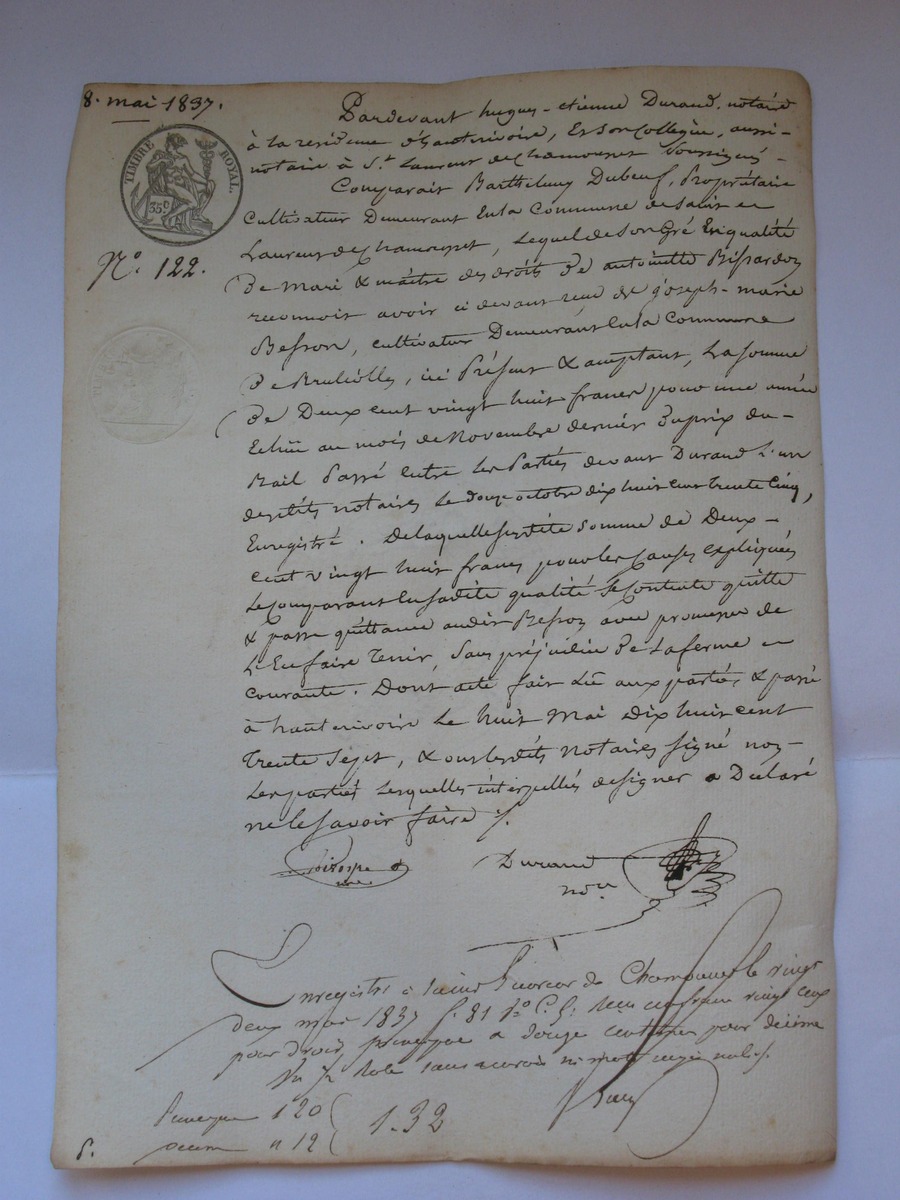 8. mai 1837.
TIMBRE ROYAL.
35c
N°. 122.
Pardevant hugues-etienne Durand, notaire
à la residence d'hauterivoire, Et son collègue, aussi-
notaire à St. Laurent de Chamousset Soussignés-
Comparait Barthelemy Dubeuf, Propriétaire
Cultivateur Demeurant En la Commune de Saint
Laurent de Chamousset, Lequel de son Gré En qualité
De Mari & maître des droits De antoinette Bissardon
reconnoit avoir ci devant recu de Joseph-marie
Besson, cultivateur Demeurant En la Commune
De Brulliolles, ici Présent & acceptant, La somme
De Deux cent vingt huit francs pour une année
Echüe au mois de Novembre dernier Du prix du-
Bail Passé Entre les Parties devant Durand L'un
desdits notaires Le douze octobre dix huit cent trente Cinq,
Enregistré. De laquelle susdite Somme de Deux-
cent vingt huit francs pour les Causes Expliquées
Le Comparant En sadite qualité Se Contente quitte
& passe quittance audit Besson avec promesse de
L'En faire Tenir, Sans préjudice De La ferme
courante. Dont acte fait Lû aux parties, & passé
à hauterivoire Le huit Mai Dix huit cent
Trente Sept, & ont lesdits Notaires signé non
Les parties Lesquelles interpellées de signer Déclaré
ne le Savoir faire /.
Durand
nore
Enregistré à Saint Laurent de Chamousset le vingt
deux mai 1837 f. 81 Reçu un franc vingt
pour droit, et douze centimes pour décime
1 20
decime " 12
1.32